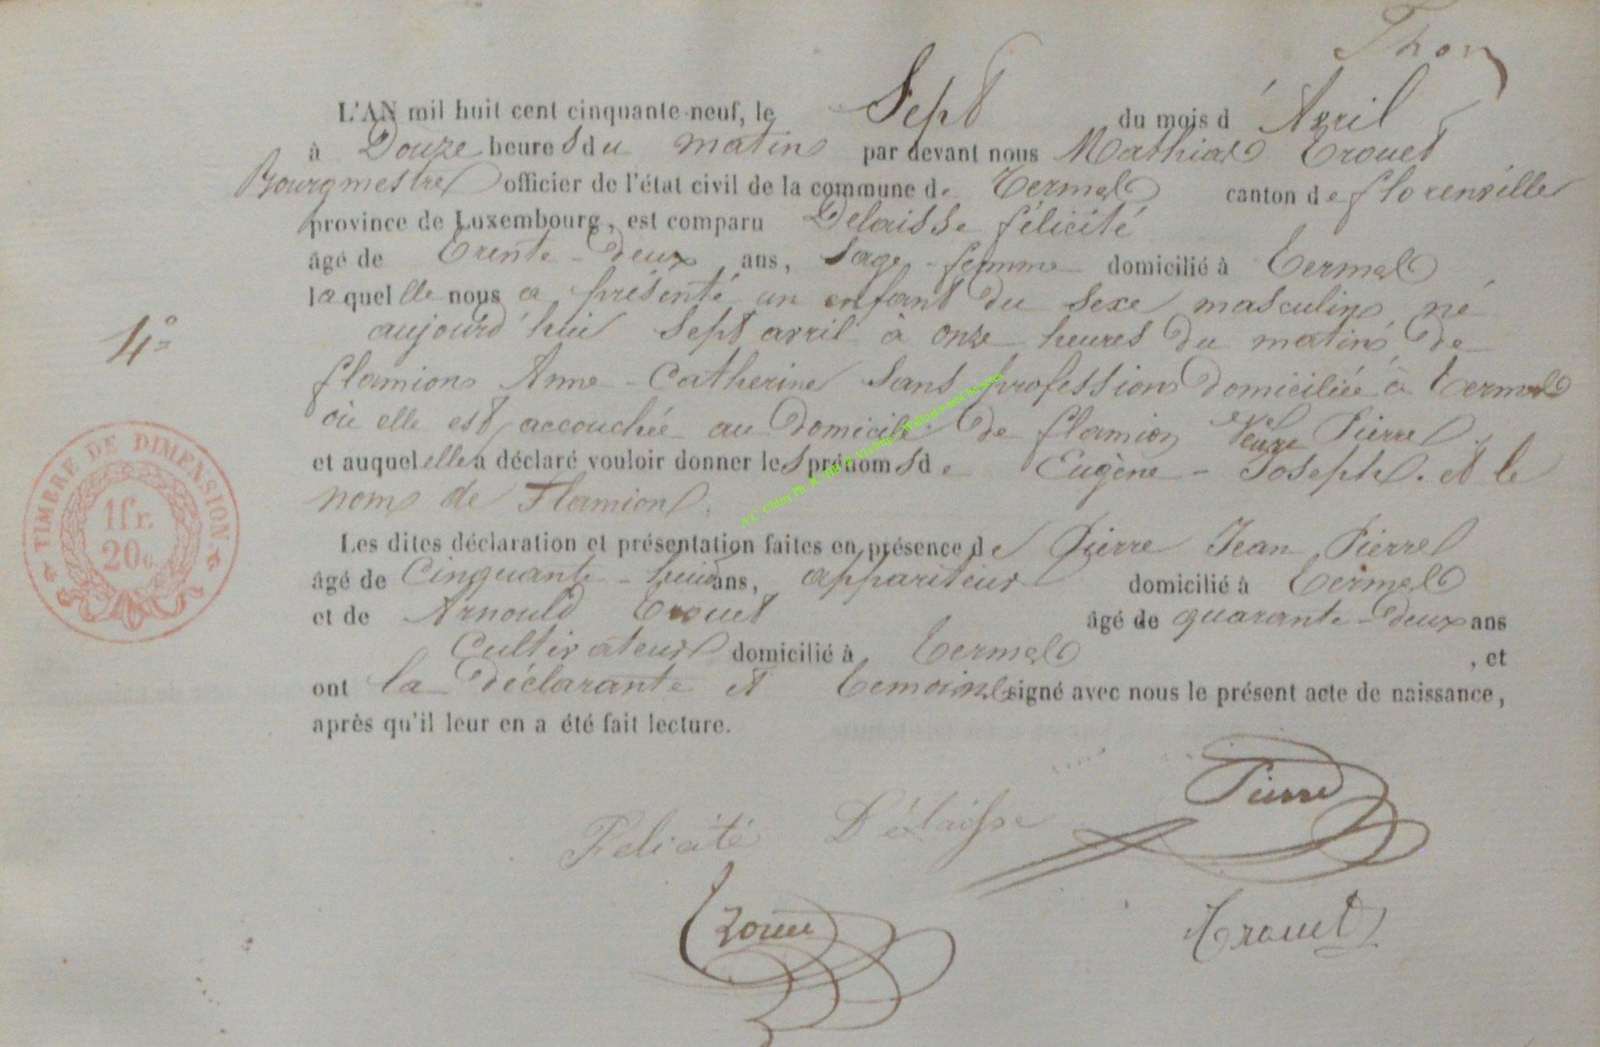 L'AN mil huit cent cinquante-neuf, le Sept du mois d'Avril
à Douze heures du matin par devant nous Mathias Trouet
Bourgmestre officier de l'état civil de la commune de Termes canton de florenville
province de Luxembourg, est comparu Delaisse félicité
âgé de trente-deux ans, sage-femme domicilié à termes
laquelle nous a présenté un enfant du sexe masculin né
aujourd'hui sept avril à onze heures du matin de
flamion Anne-Catherine sans profession domiciliée à termes
où elle est accouchée au domicile de flamion veuve Pierre
et auquel elle a déclaré vouloir donner les prénoms de Eugène-Joseph. et le
nom de Flamion.
Les dites déclaration et présentation faites en présence de Pierre Jean Pierre
âgé de cinquante-huit ans, appariteur domicilié à termes
et de Arnould trouet âgé de quarante-deux ans
Cultivateur domicilié à termes, et
ont la déclarante et témoins signé avec nous le présent acte de naissance,
après qu'il leur en a été fait lecture.
4°
TIMBRE DE DIMENSION
1fr.
20c
Pierre
Felicité Délaisse
Trouet
Trouet